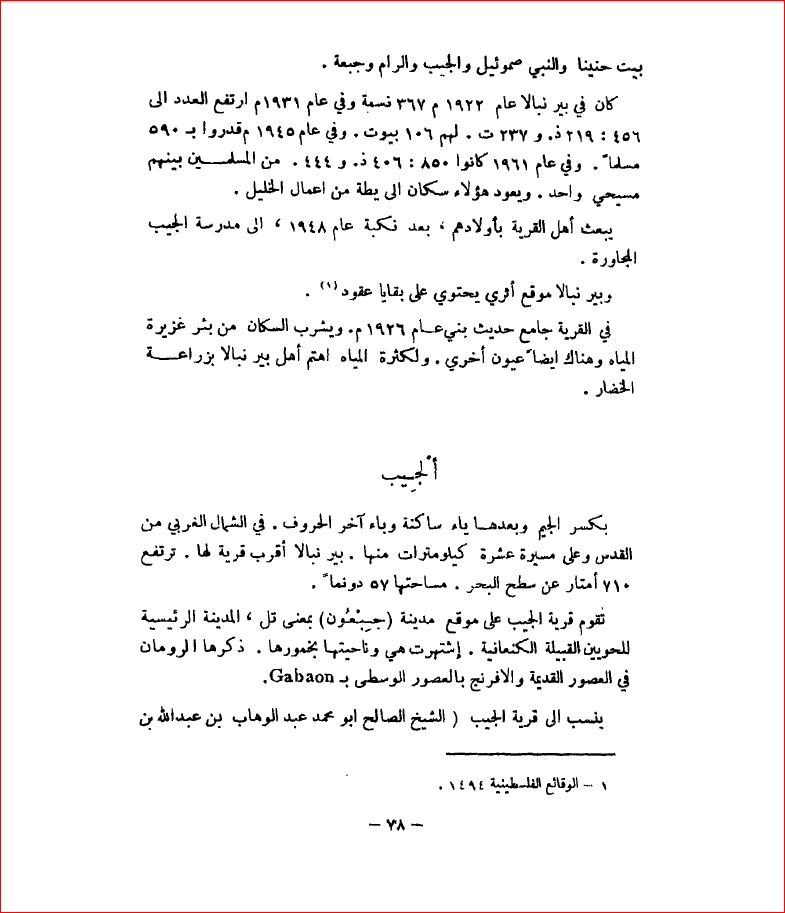 بيت حنينا والنبي صموئيل والجيب والرام وجبعة .
كان في بير نبالا عام ١٩٢٢ م ٣٦٧ نسمة وفي عام ١٩٣١م ارتفع العدد الى
٤٥٦ : ٢١٩ ذ. و ٢٣٧ ت . لهم ١٠٦ بيوت . وفي عام ١٩٤٥ م قدروا بـ ٥٩٠
مسلماً . وفي عام ١٩٦١ كانوا ٨٥٠ : ٤٠٦ ذ. و ٤٤٤ . من المسلمين بينهم
مسيحي واحد . ويعود هؤلاء سكان الى يطة من اعمال الخليل .
يبعث أهل القرية بأولادهم ، بعد نكبة عام ١٩٤٨ ، الى مدرسة الجيب
المجاورة .
وبير نبالا موقع أثري يحتوي على بقايا عقود (١) .
في القرية جامع حديث بني عام ١٩٢٦ م. ويشرب السكان من بئر غزيرة
المياه وهناك ايضاً عيون أخري . ولكثرة المياه اهتم أهل بير نبالا بزراعة
الخضار .
ألجِيب
بكسر الجيم وبعدها ياء ساكنة وباء آخر الحروف . في الشمال الغربي من
القدس وعلى مسيرة عشرة كيلومترات منها . بير نبالا أقرب قرية لها . ترتفع
٧١٠ أمتار عن سطح البحر . مساحتها ٥٧ دونماً .
تقوم قرية الجيب على موقع مدينة (جِبْعُون) بمعنى تل ، المدينة الرئيسية
للحويين القبيلة الكنعانية . إشتهرت هي وناحيتها بخمورها . ذكرها الرومان
في العصور القديمة والافرنج بالعصور الوسطى بـ Gabaon.
ينسب الى قرية الجيب ( الشيخ الصالح ابو محمد عبد الوهاب بن عبدالله بن
١ – الوقائع الفلسطينية ١٤٩٤ .
– ٧٨ –